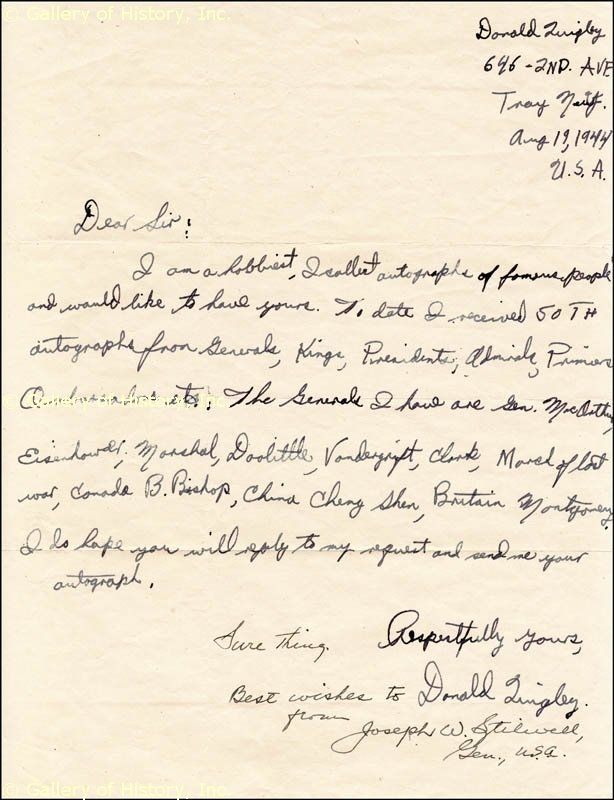 © Gallery of History, Inc.
Donald Quigley
646 - 2ND. AVE
Troy
Aug 19, 1944
U.S.A.
Dear Sir:
I am a hobbiest, I collect autographs of famous people
and would like to have yours. To date I received 50TH
autographs from Generals, Kings, Presidents, Admirals, Primiers
Ambassadors etc. The Generals I have are Gen. MacArthur,
© Gallery of History, Inc.
Eisenhower, Marshal, Doolittle, Vandergrift, Clark, March of last
war, Canada B. Bishop, China Cheng Shen, Britain Montgomery
I do hope you will reply to my request and send me your
autograph.
Respectfully yours,
Donald Quigley.
Sure thing.
Best wishes to
from
Joseph W. Stilwell,
Gen., U.S.A.
© Gallery of History, Inc.